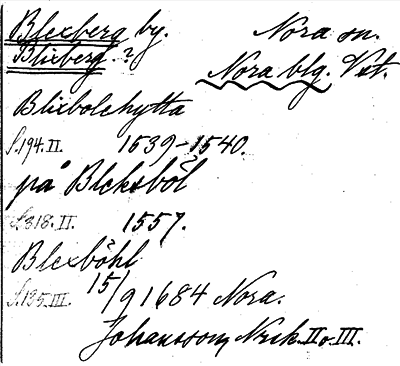 Blexberg by. Nora sn.
Blixberg.? Nora blg. Vst.
Blixbolehytta
s.194.II. 1539-1540.
på Bleksböl
s.318.II. 1557.
Blexböhl
s.135.III. 15/9 1684 Nora.
Johansson, Nrsk. II o. III.